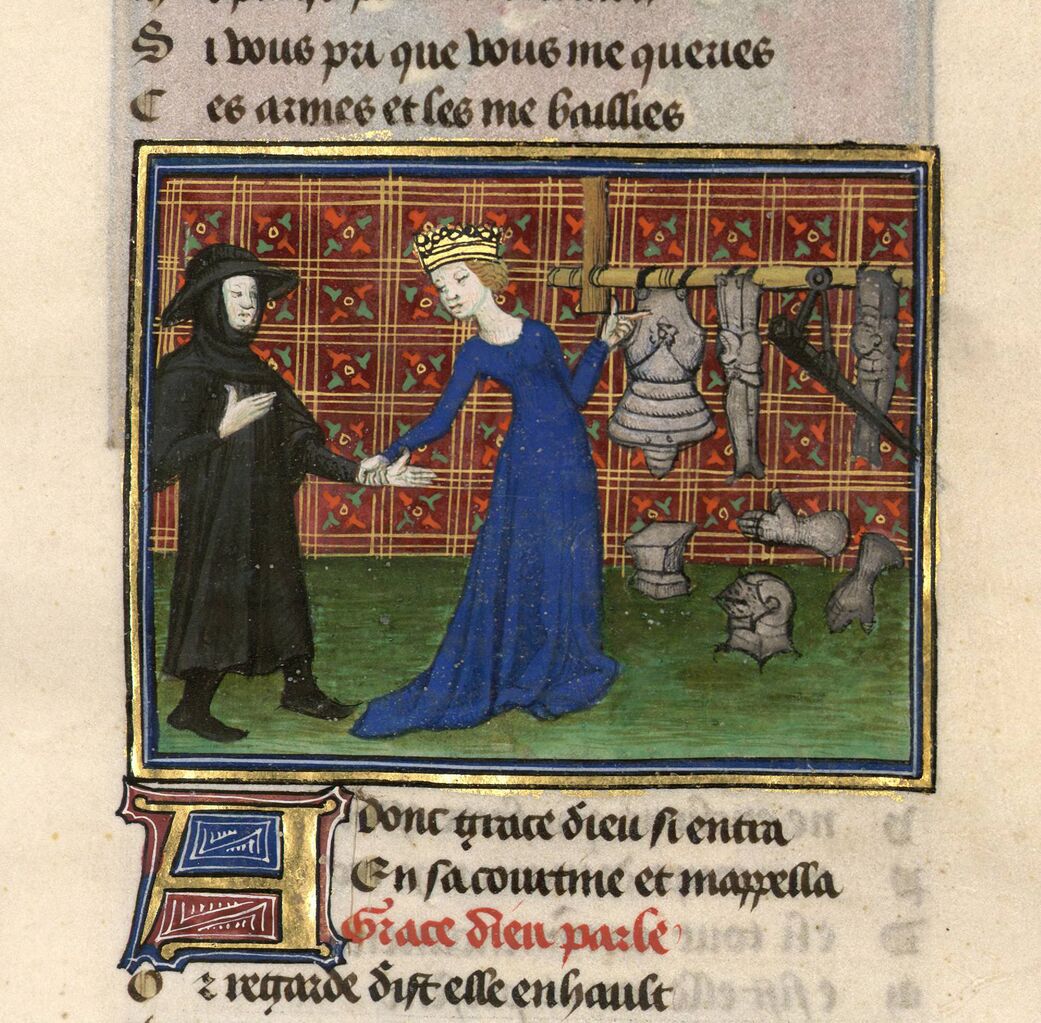 Si vous pri que vous me queries
Ces armes et les me baillies
Adonc grace dieu si entra
En sa courtine et mappella
Grace dieu parle
Or regarde dist elle en hault